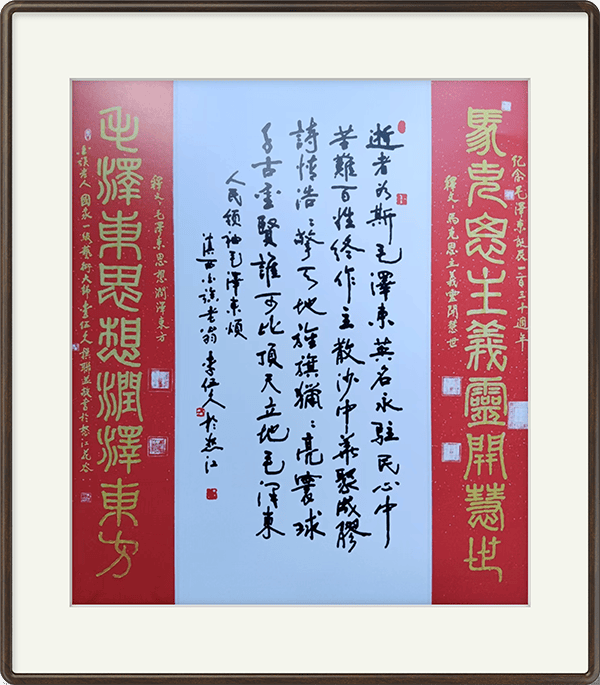 纪念毛澤東誕辰一百三十週年
馬克思主義靈開慧世
釋文:馬克思主義靈開慧世
逝者如斯毛澤東英名永駐民心中
苦難百姓終作主散沙中華聚成膠
詩情浩:擎天地旌旗獵:亮寰球
千古聖賢誰可比頂天立地毛澤東
人民領袖毛澤東頌
滇西小老翁 李伍於怒江
釋文:毛澤東思想潤澤東方
毛澤東思想潤澤東方
小老人 國家一級藝術大師李伍撰聯並敬書於怒江花谷